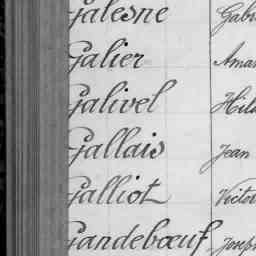 Galesne
Galier
Galivel
Gallais Jean
Galliot Victor
Gandebœuf Joseph